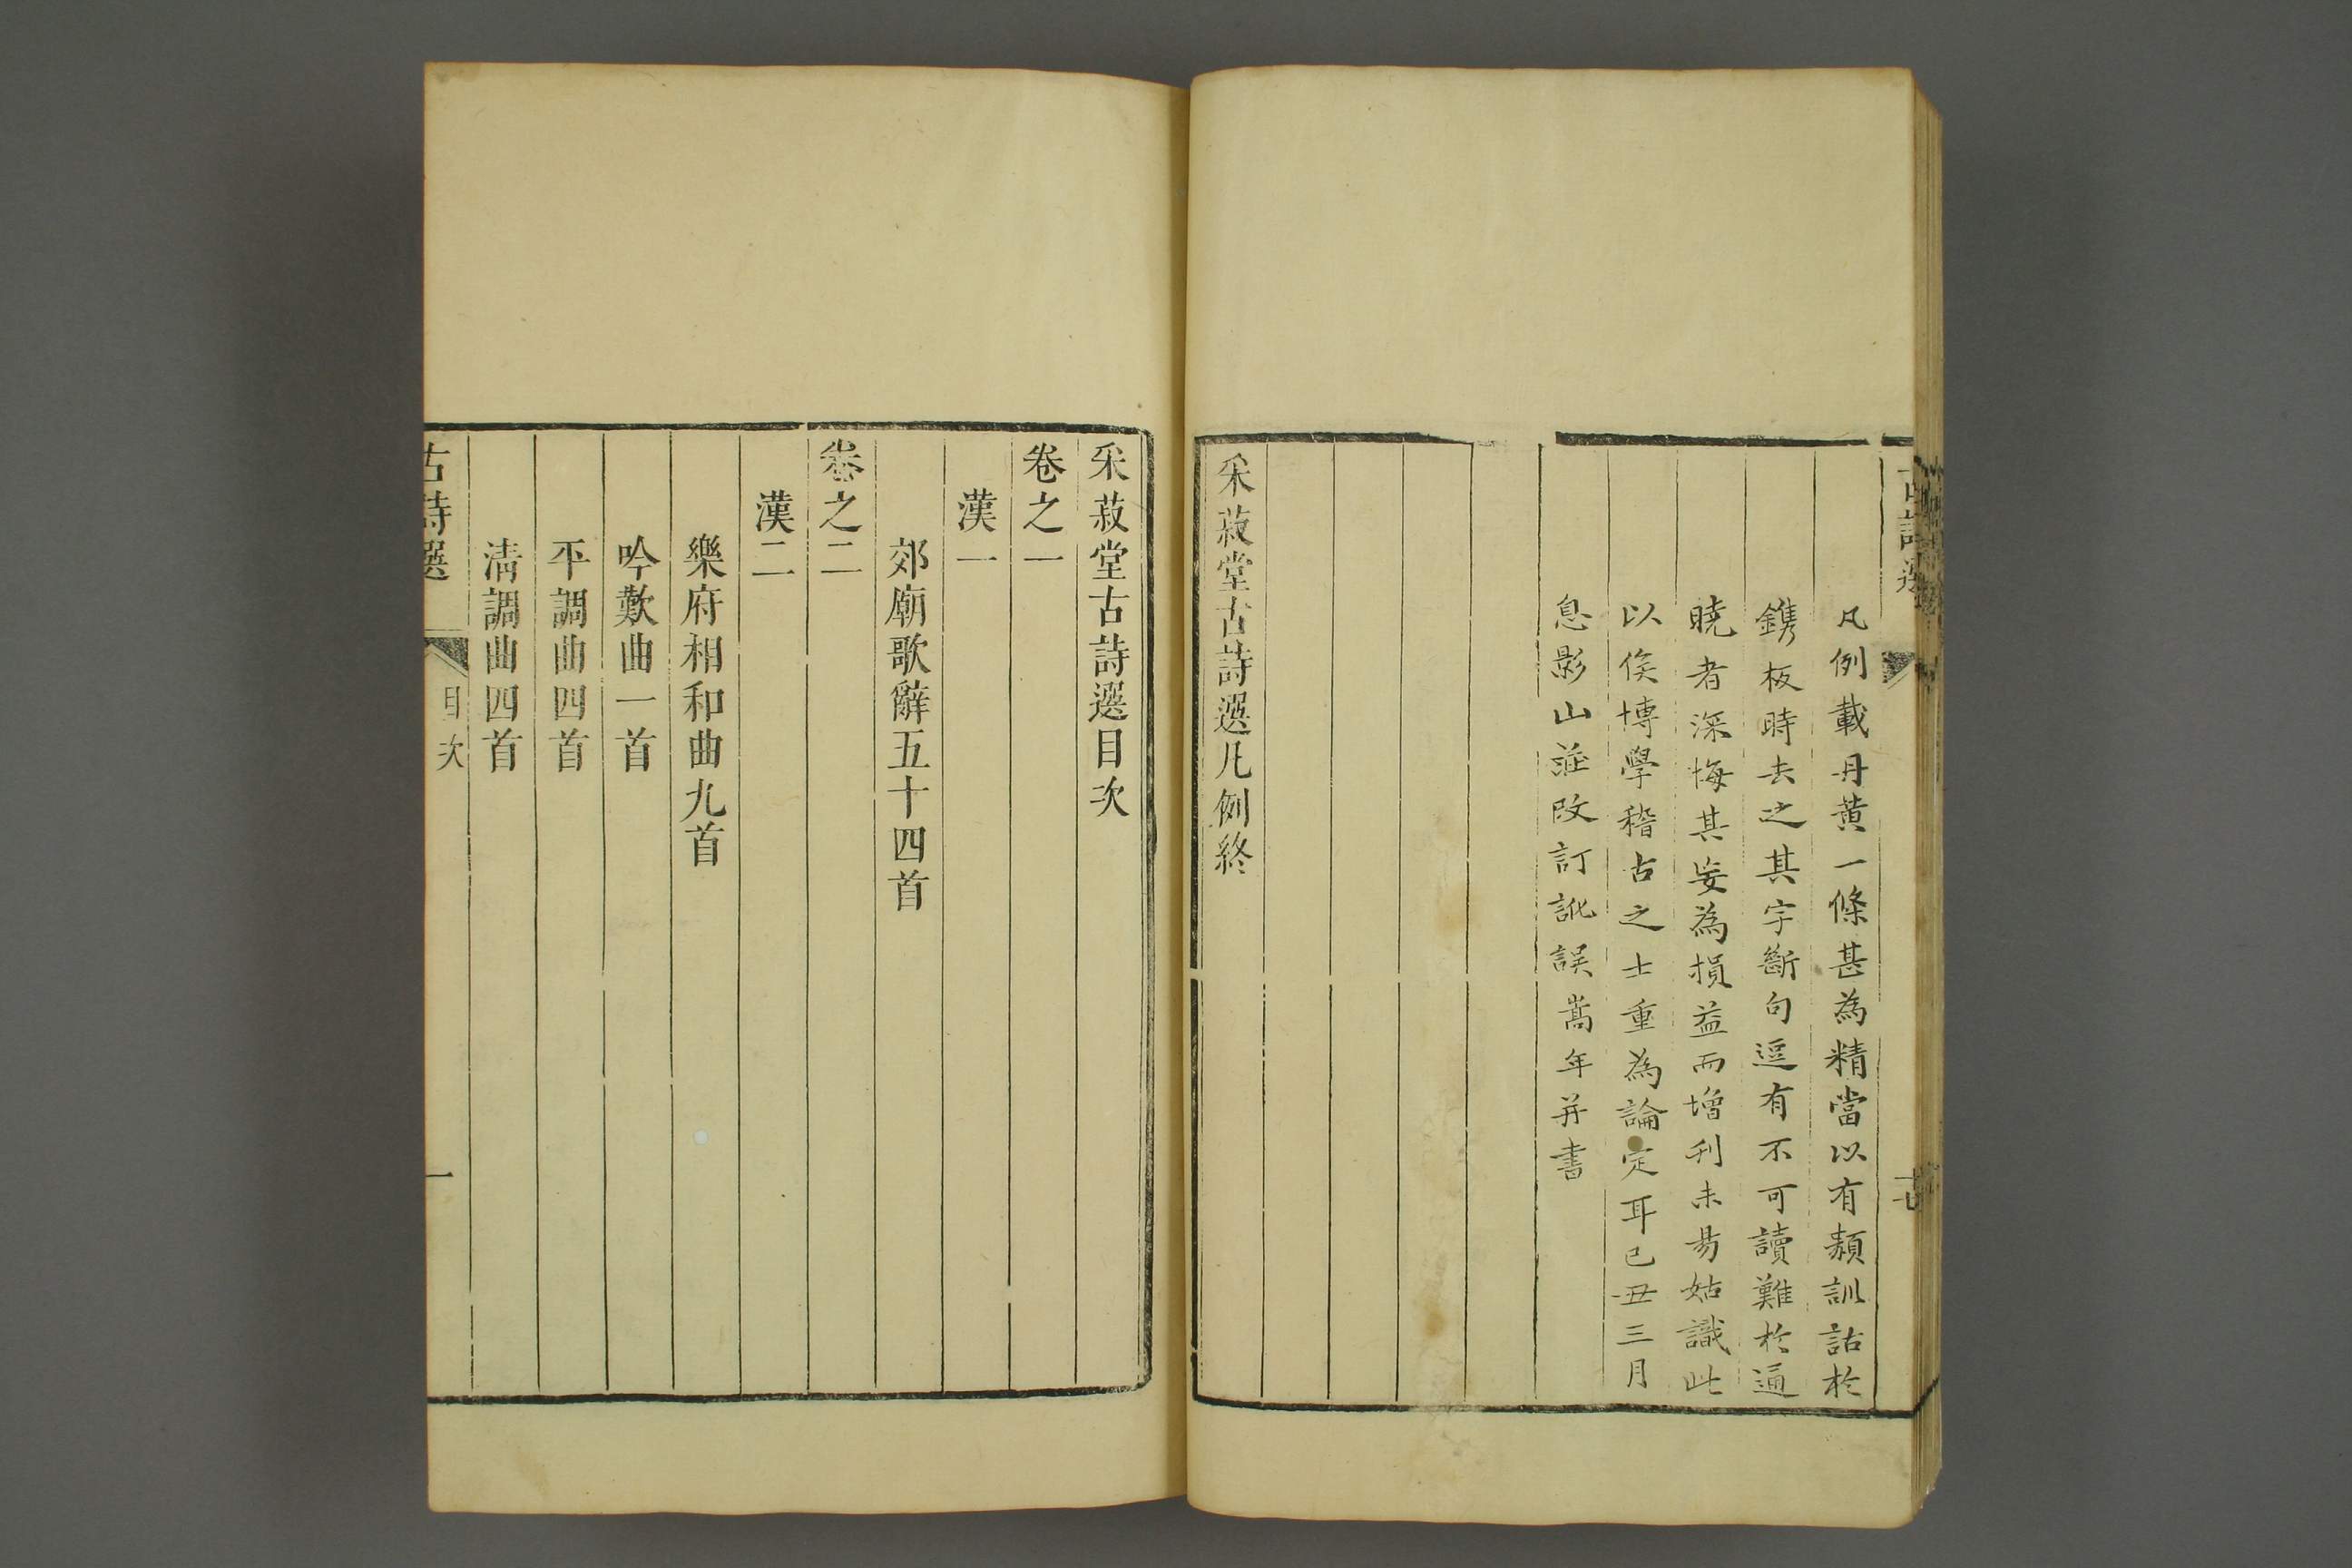 凡例載丹黄一條甚為精當以有類訓詁於
鐫板時去之其字斷句逗有不可讀難於通
曉者深悔其妄為損益而增刊未易姑識此
以俟博學稽古之士重為論定耳己丑三月
息影山莊改訂訛誤嵩年并書
采菽堂古詩選凡例終
采菽堂古詩選目次
卷之一
漢一
郊廟歌辭五十四首
卷之二
漢二
樂府相和曲九首
吟歎曲一首
平調曲四首
清調曲四首
古詩選 目次 一